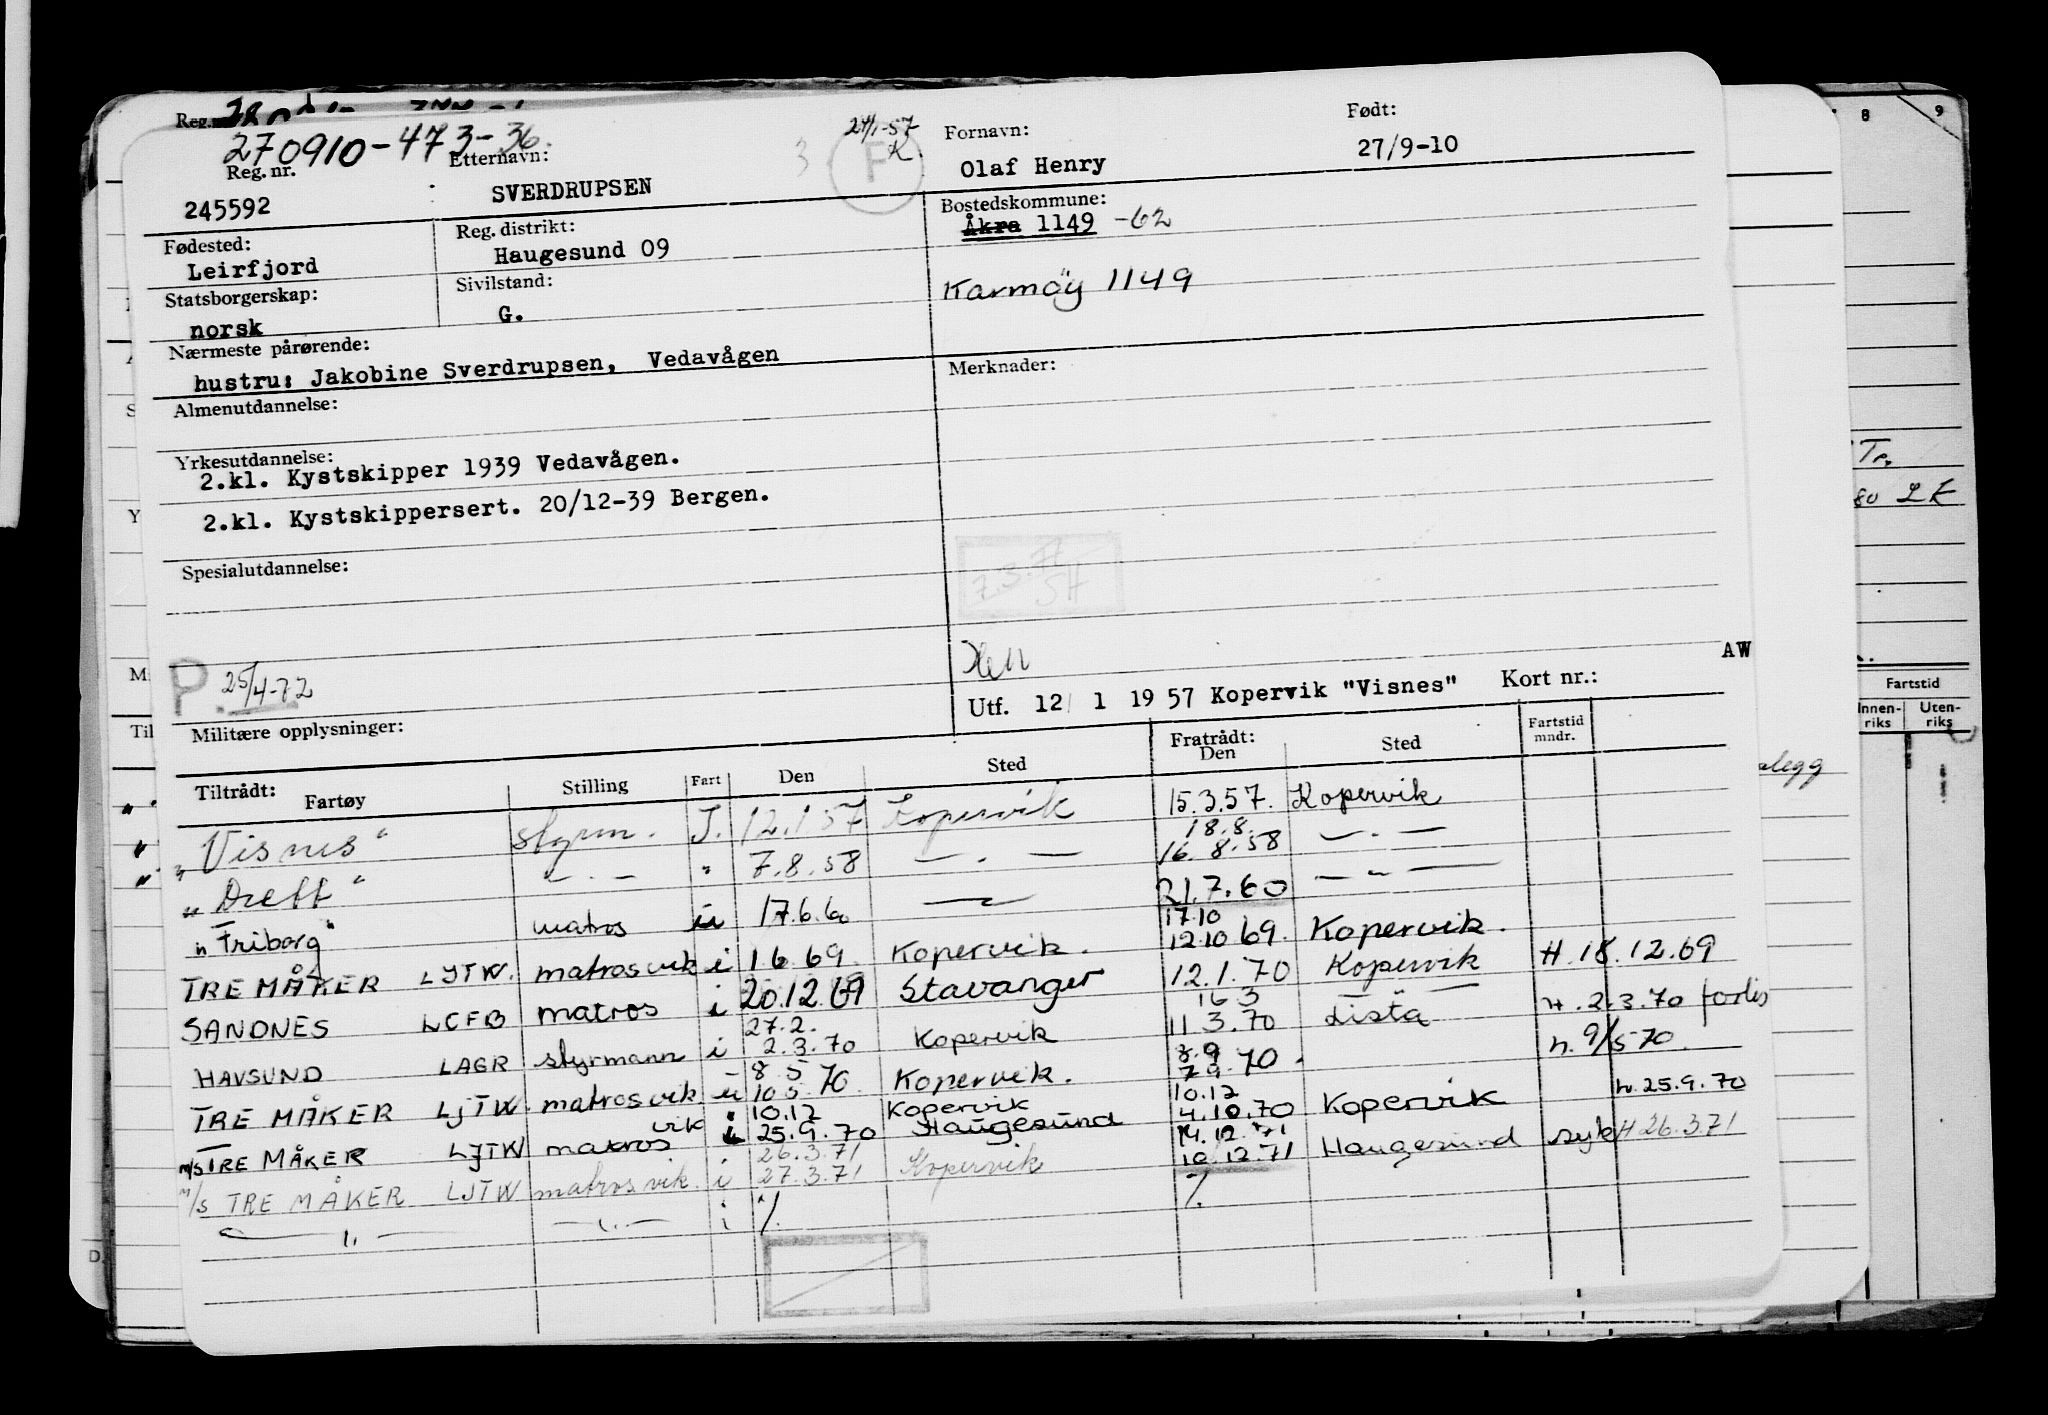 Reg.nr.
270910-473-36.
24/1-57
Reg. nr. Etternavn: Fornavn: Født:
245592 SVERDRUPSEN F Olaf Henry 27/9-10
Fødested: Reg. distrikt: Bostedskommune:
Leirfjord Haugesund 09 Åkra 1149 -62
Statsborgerskap: Sivilstand: Karmøy 1149
norsk G.
Nærmeste pårørende: Merknader:
hustru: Jakobine Sverdrupsen, Vedavågen
Almenutdannelse:
Yrkesutdannelse:
2.kl. Kystskipper 1939 Vedavågen.
2.kl. Kystskippersert. 20/12-39 Bergen.
Spesialutdannelse:
7.3.
SH
AW
P. 25/4-72
Utf. 12/ 1 19 57 Kopervik "Visnes" Kort nr.:
Militære opplysninger:
Tiltrådt: Fartøy Stilling Fart Den Sted Fratrådt: Den Sted Fartstid mndr.
"Visnes" styrm. I. 12.1.57 Kopervik 15.3.57. Kopervik
18.8.
"Dreff" — " — " 7.8.58 — " — 16.8.58 — " —
"Friborg" matros u 17.6.60 — " — 21.7.60 — " —
17.10
TRE MÅKER LJTW. matrosvik i 1.6.69. Kopervik. 12.10.69. Kopervik.
SANDNES LCFB matros i 20.12.69 Stavanger 12.1.70 Kopervik H.18.12.69
27.2. 16 3
HAVSUND LAGR styrmann i 2.3.70 Kopervik 11 3.70 Lista H.2.3.70
8 5 8.9
TRE MÅKER LJTW. matrosvik. u 10 5 70 Kopervik. 7.9.70. h. 9/5-70.
vik 10.12 Kopervik 10.12
m/s TRE MÅKER LJTW matros i 25.9.70 Haugesund 4.10.70 Kopervik h.25.9.70
26.3.71 14.12.71
m/s TRE MÅKER LJTW matrosvik. i 27.3.71 Kopervik 10.12.71 Haugesund syk H 26.3.71
— " — — " — i ./. ./.
8 9
Tr.
80 LK
Fartstid
Innen-riks Uten-riks